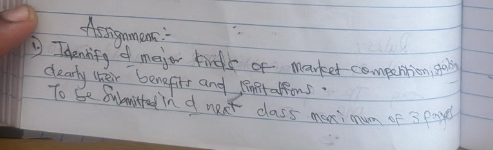 Assignment:-
1) Identify d major kinds of market competition, stating
clearly their benefits and limitations.
To be Submitted in d next class maximum of 3 pages